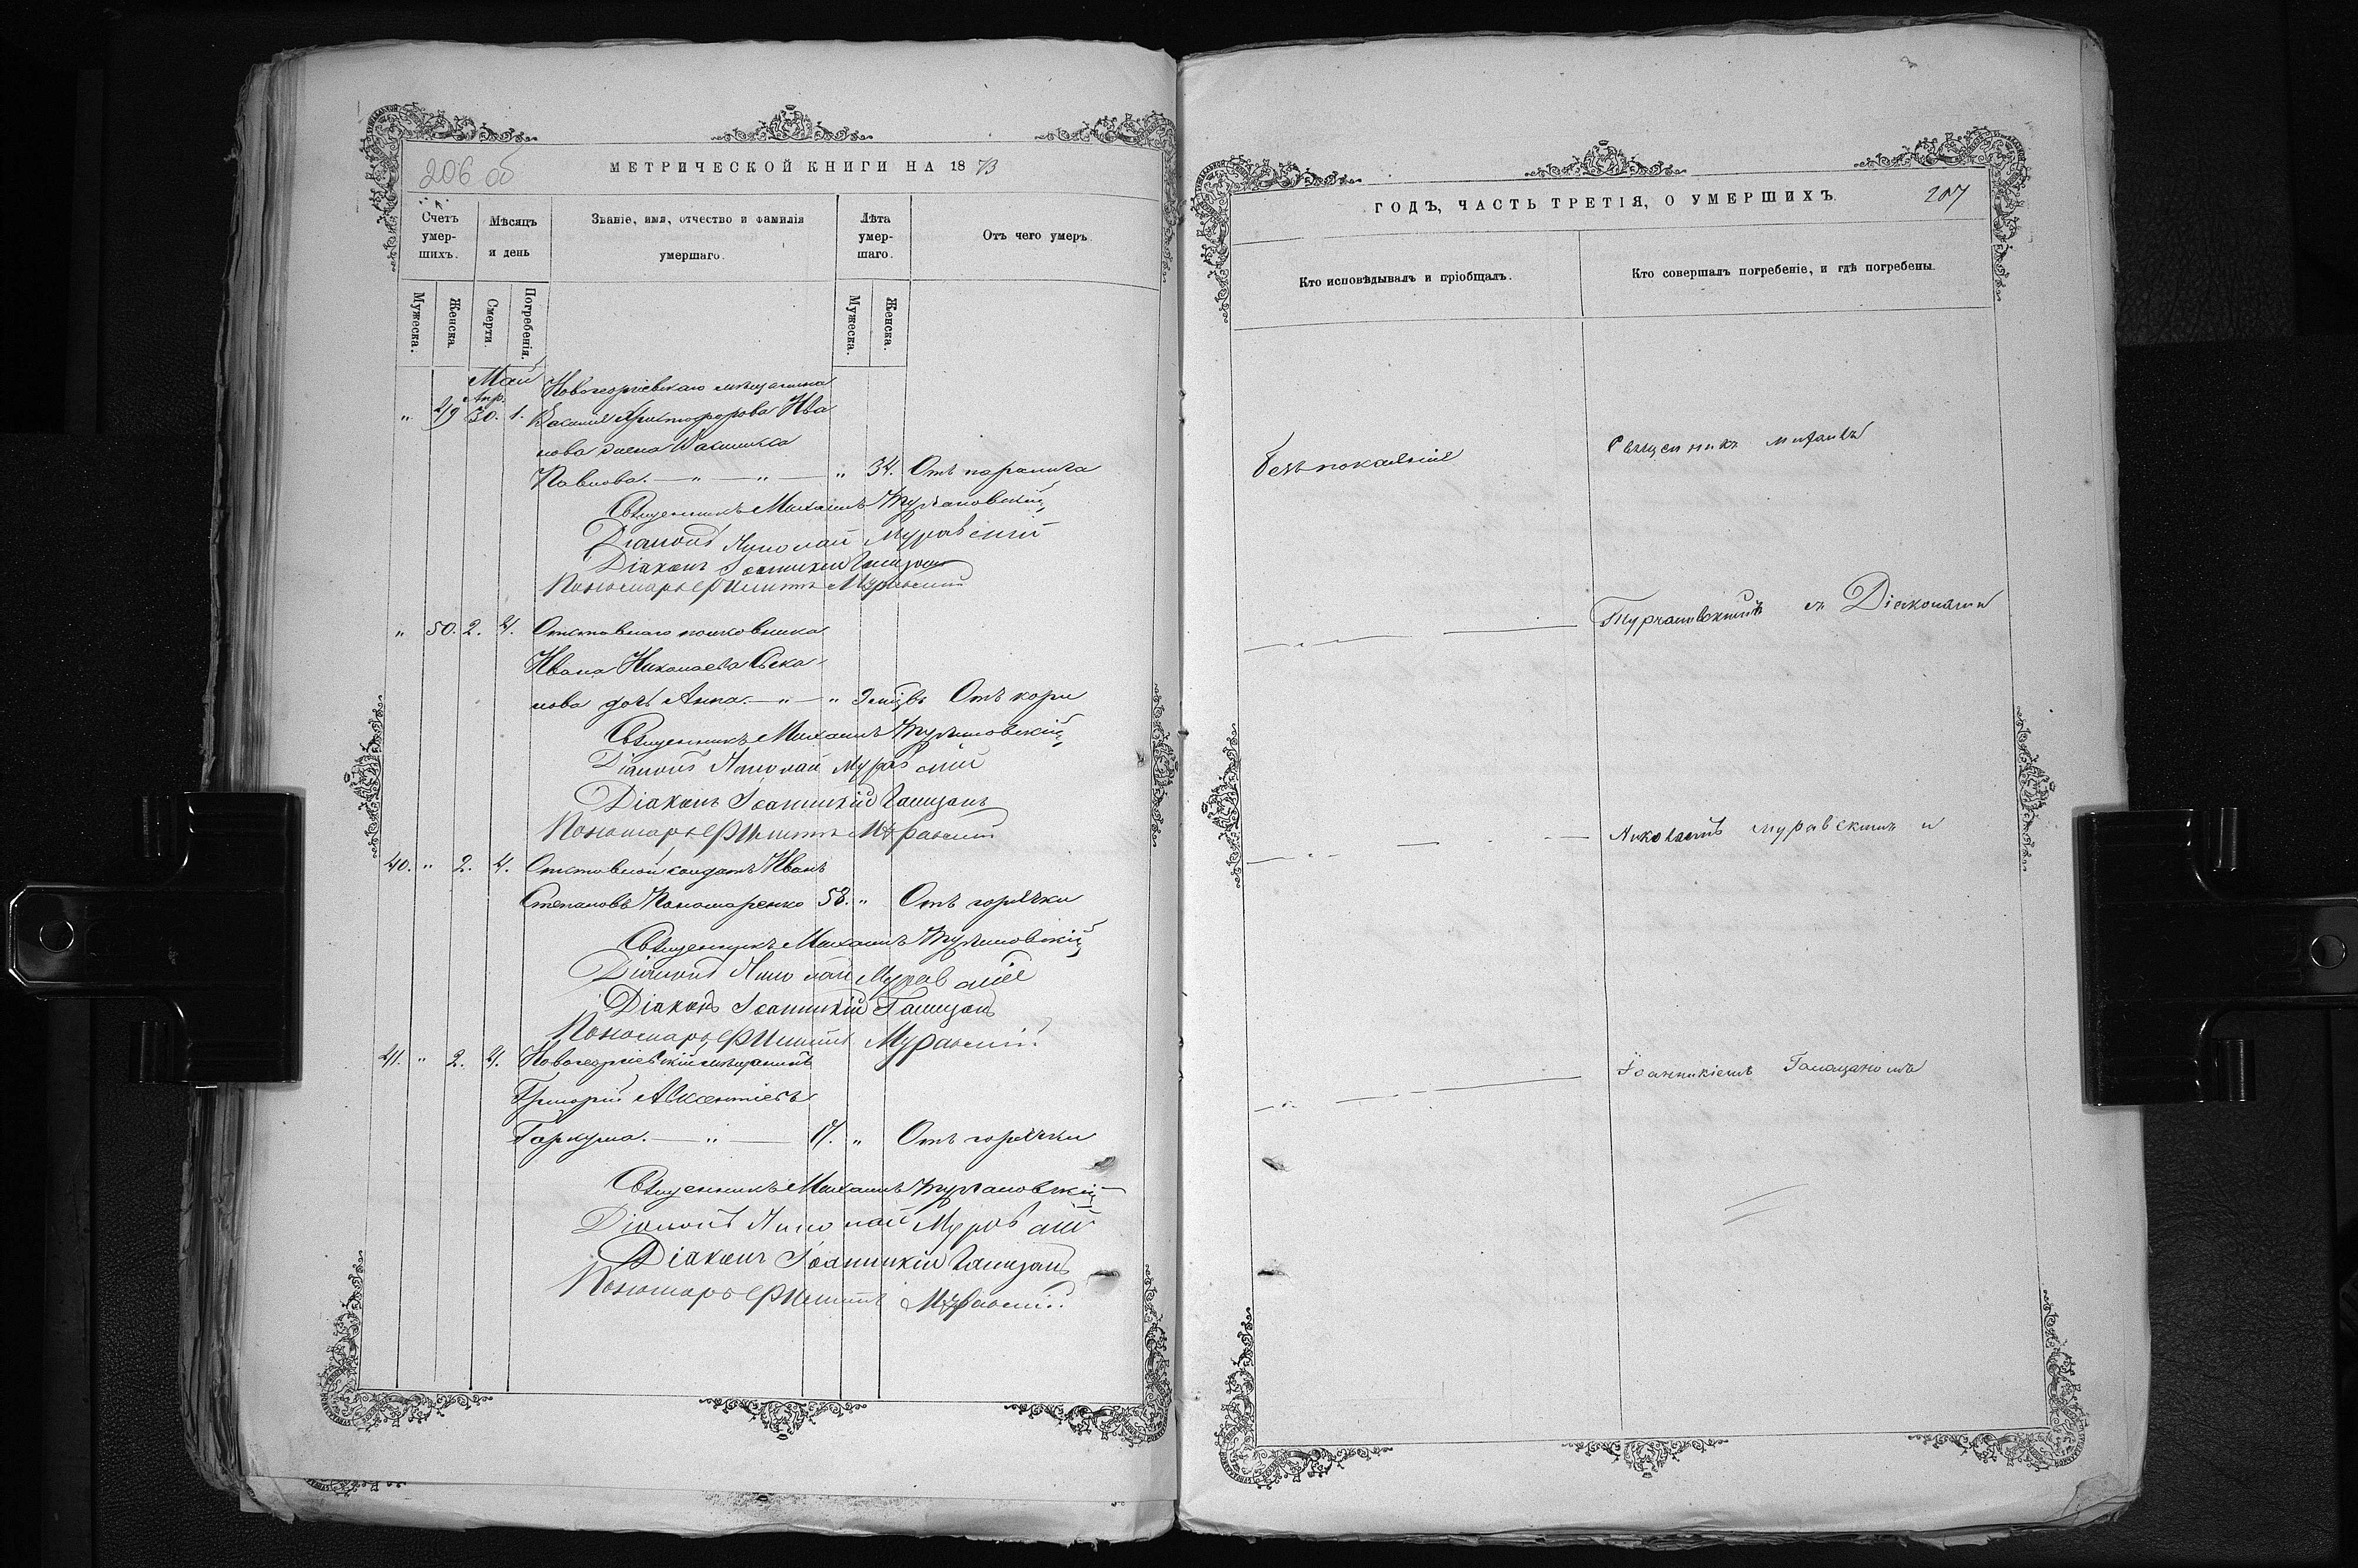 206 об
МЕТРИЧЕСКОЙ КНИГИ НА 1873
Счетъ умер-шихъ.
Мѣсяцъ и день
Званіе, имя, отчество и фамилія умершаго.
Лѣта умер-шаго.
Отъ чего умеръ.
Мужеска.
Женска.
Смерти.
Погребенія.
Мужеска.
Женска.
Май
Новогеоргіевскаго мѣщанина
" 49 Апр. 30. 1. Василія Христофорова Ива
нова жена
Павлова. — " — " — " 34. Отъ паралича
Священникъ Михаилъ Турчановскій
Діаконъ Николай Муравскій
Діаконъ Іоанникій Галицанъ
Пономарь Филиппъ Муравскій
" 50. 2. 4. Отставнаго полковника
Ивана Николаева
нова дочь Анна. — " — " Отъ кори
Священникъ Михаилъ Турчановскій
Діаконъ Николай Муравскій
Діаконъ Іоанникій Галицанъ
Пономарь Филиппъ Муравскій
40. " 2. 4. Отставной солдатъ Иванъ
Степановъ Пономаренко 58. " Отъ горячки
Священникъ Михаилъ Турчановскій
Діаконъ Николай Муравскій
Діаконъ Іоанникій Галицанъ
Пономарь Филиппъ Муравскій
41. " 2. 4. Новогеоргіевскій мѣщанинъ
Григорій Авксентіевъ
Гаркуша. — " — 17. " Отъ горячки
Священникъ Михаилъ Турчановскій
Діаконъ Николай Муравскій
Діаконъ Іоанникій Галицанъ
Пономарь Филиппъ Муравскій
ГОДЪ, ЧАСТЬ ТРЕТІЯ, О УМЕРШИХЪ.
207
Кто исповѣдывалъ и пріобщалъ.
Кто совершалъ погребеніе, и гдѣ погребены.
Безъ покаянія
Священникъ Михаилъ
Турчановскій съ Діаконами
Николаемъ Муравскимъ и
Іоанникіемъ Галицаномъ